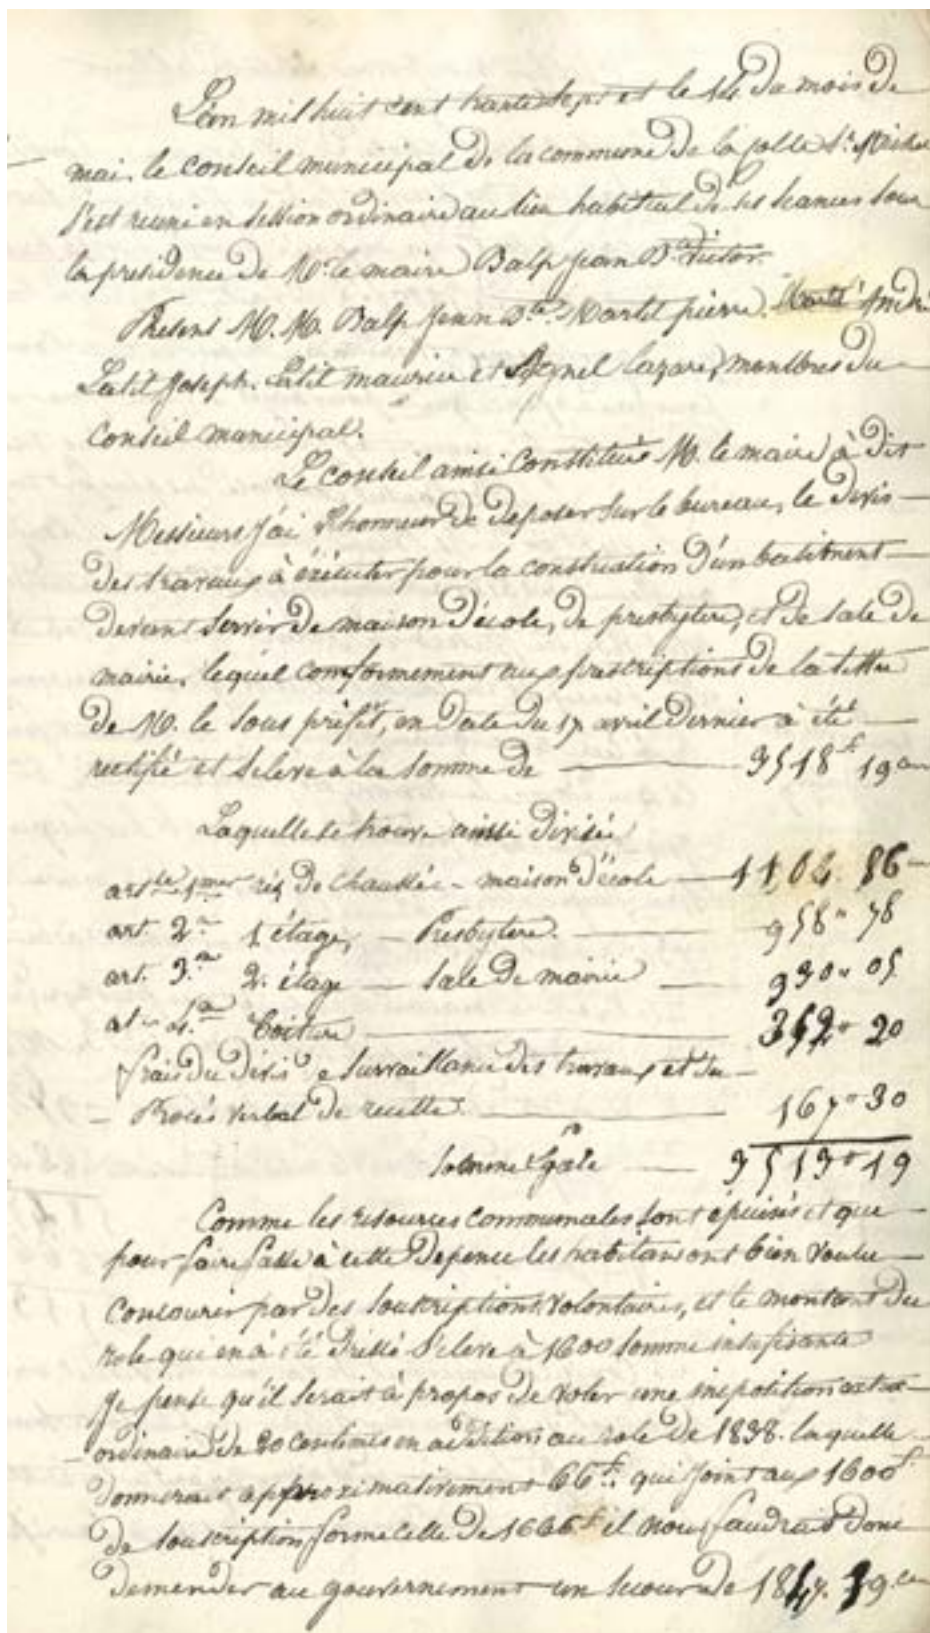 L'an mil huit cent trente sept et le 14 du mois de
mai, le conseil municipal de la commune de la Colle St Michel
s'est reuni en session ordinaire au lieu habituel de ses seances sous
la presidence de Mr le maire Balp Jean Bte Victor.
Presens M.M. Balp Jean Bte. Martel pierre. André
Latil Joseph. Latil maurice et Agnel lazare, membres du
Conseil municipal.
Le conseil ainsi constitué M. le maire à dit
Messieurs J'ai l'honneur de deposer sur le bureau, le devis
des travaux à éxécuter pour la construction d'un batiment
devant servir de maison d'école, de presbytere, et de sale de
mairie. lequel conformement aux prescriptions de la lettre
de M. le sous préfèt, en date du 17 avril dernier à été
rectifié et s'eleve à la somme de — 3518f 19 cen
Laquelle se trouve ainsi divisée
art le 1mer réz de chaussée - maison d'école — 1104. 86
art 2e 1 étage, — Presbytere. — 958" 78
art. 3.e 2. étage — sale de mairie — 930" 05
at - 4.e Toiture — 352" 20
frais du dévis e survaillance des travaux et du
- Procés verbal de recette. — 167" 30
somme Egale — 3513" 19
Comme les resources communales sont épuisés et que
pour faire fasse à cette depence les habitans ont bien voulu
concourir par des souscriptions volontaires, et le montant du
role qui en à été dressé s'eleve à 1600 somme insufisante
Je pense qu'il serait à propos de voter une imposition extra-
ordinaire de 20 centimes en addition au role de 1838. laquelle
donnerait approximativement 66f. qui joint aux 1600f
de souscription forme celle de 1666f il nous faudrait donc
demender au gouvernement un secour de 1847. 19 cen